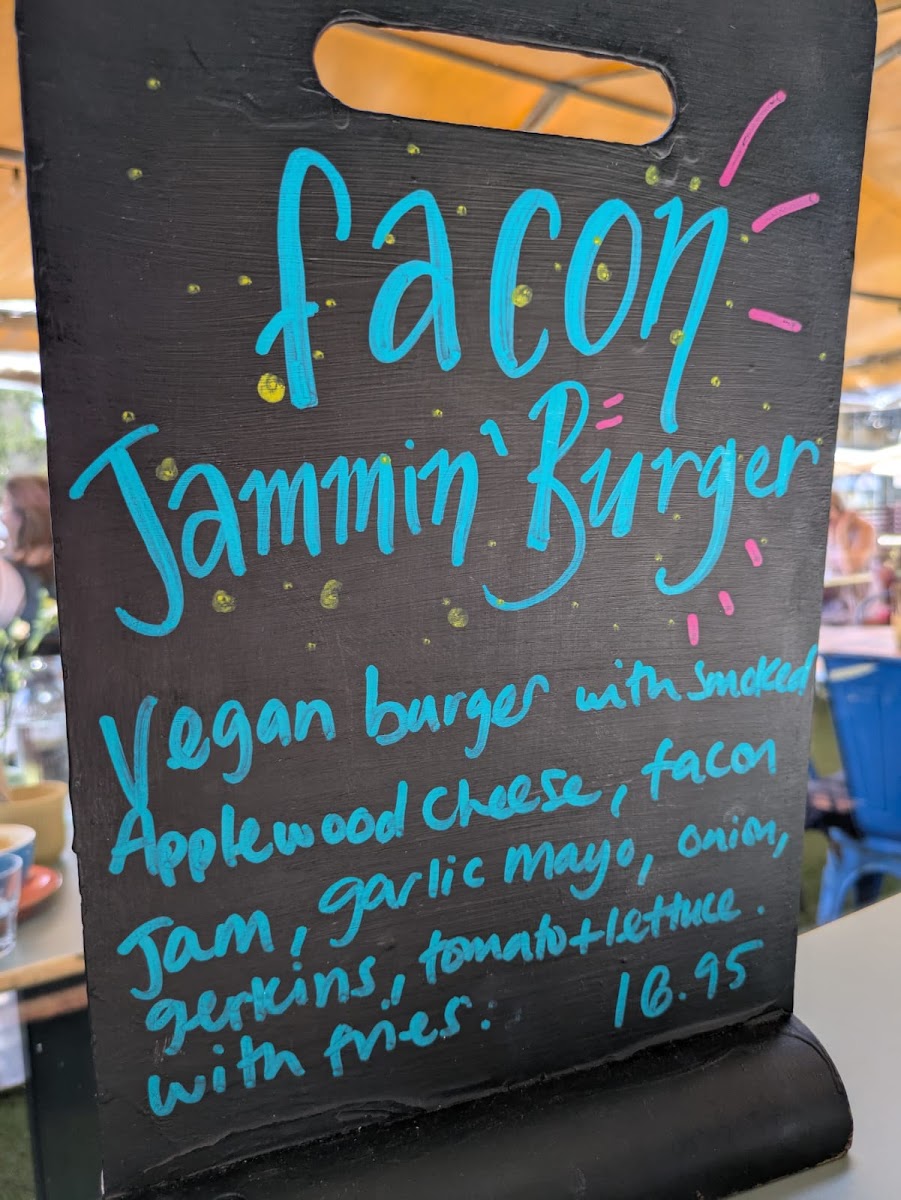 facon
Jammin' Burger
Vegan burger with smoked
Applewood cheese, facon
Jam, garlic mayo, onion,
gerkins, tomato + lettuce.
with fries. 16.95